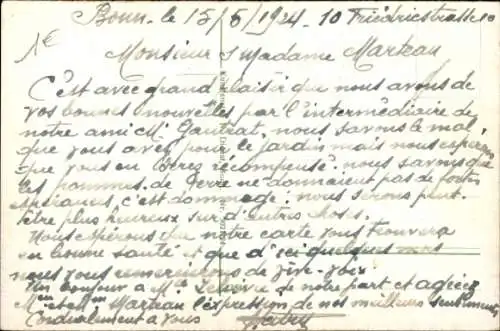 Bonn. le 15/6/1924. 10 Friedricstrasse 10
Monsieur & Madame Marteau
C'est avec grand plaisir que nous avons de
vos bonnes nouvelles par l'intermédiaire de
notre ami Mr Gautrat, nous savons le mal
que vous avez pour le jardin mais nous espérons
que vous en serez récompensé. nous savons que
les pommes de terre ne donnaient pas de fortes
espérances, c'est dommage; nous serons peut
être plus heureux sur d'autres choses.
Nous espérons que notre carte vous trouvera
en bonne santé et que d'ici quelques mois
nous vous remercierons de vive-voix
Un bonjour à Mr de notre part et agréez
Mr et Mme Marteau l'expression de nos meilleurs sentiments
Cordialement à vous